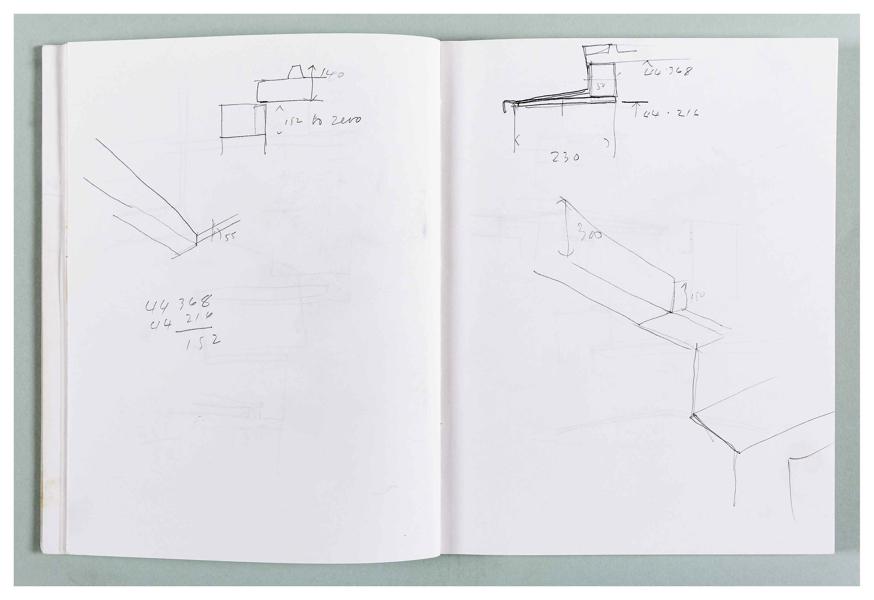 140
152 to zero
55
44 368
44 216
152
44.368
50
44.216
230
300
150